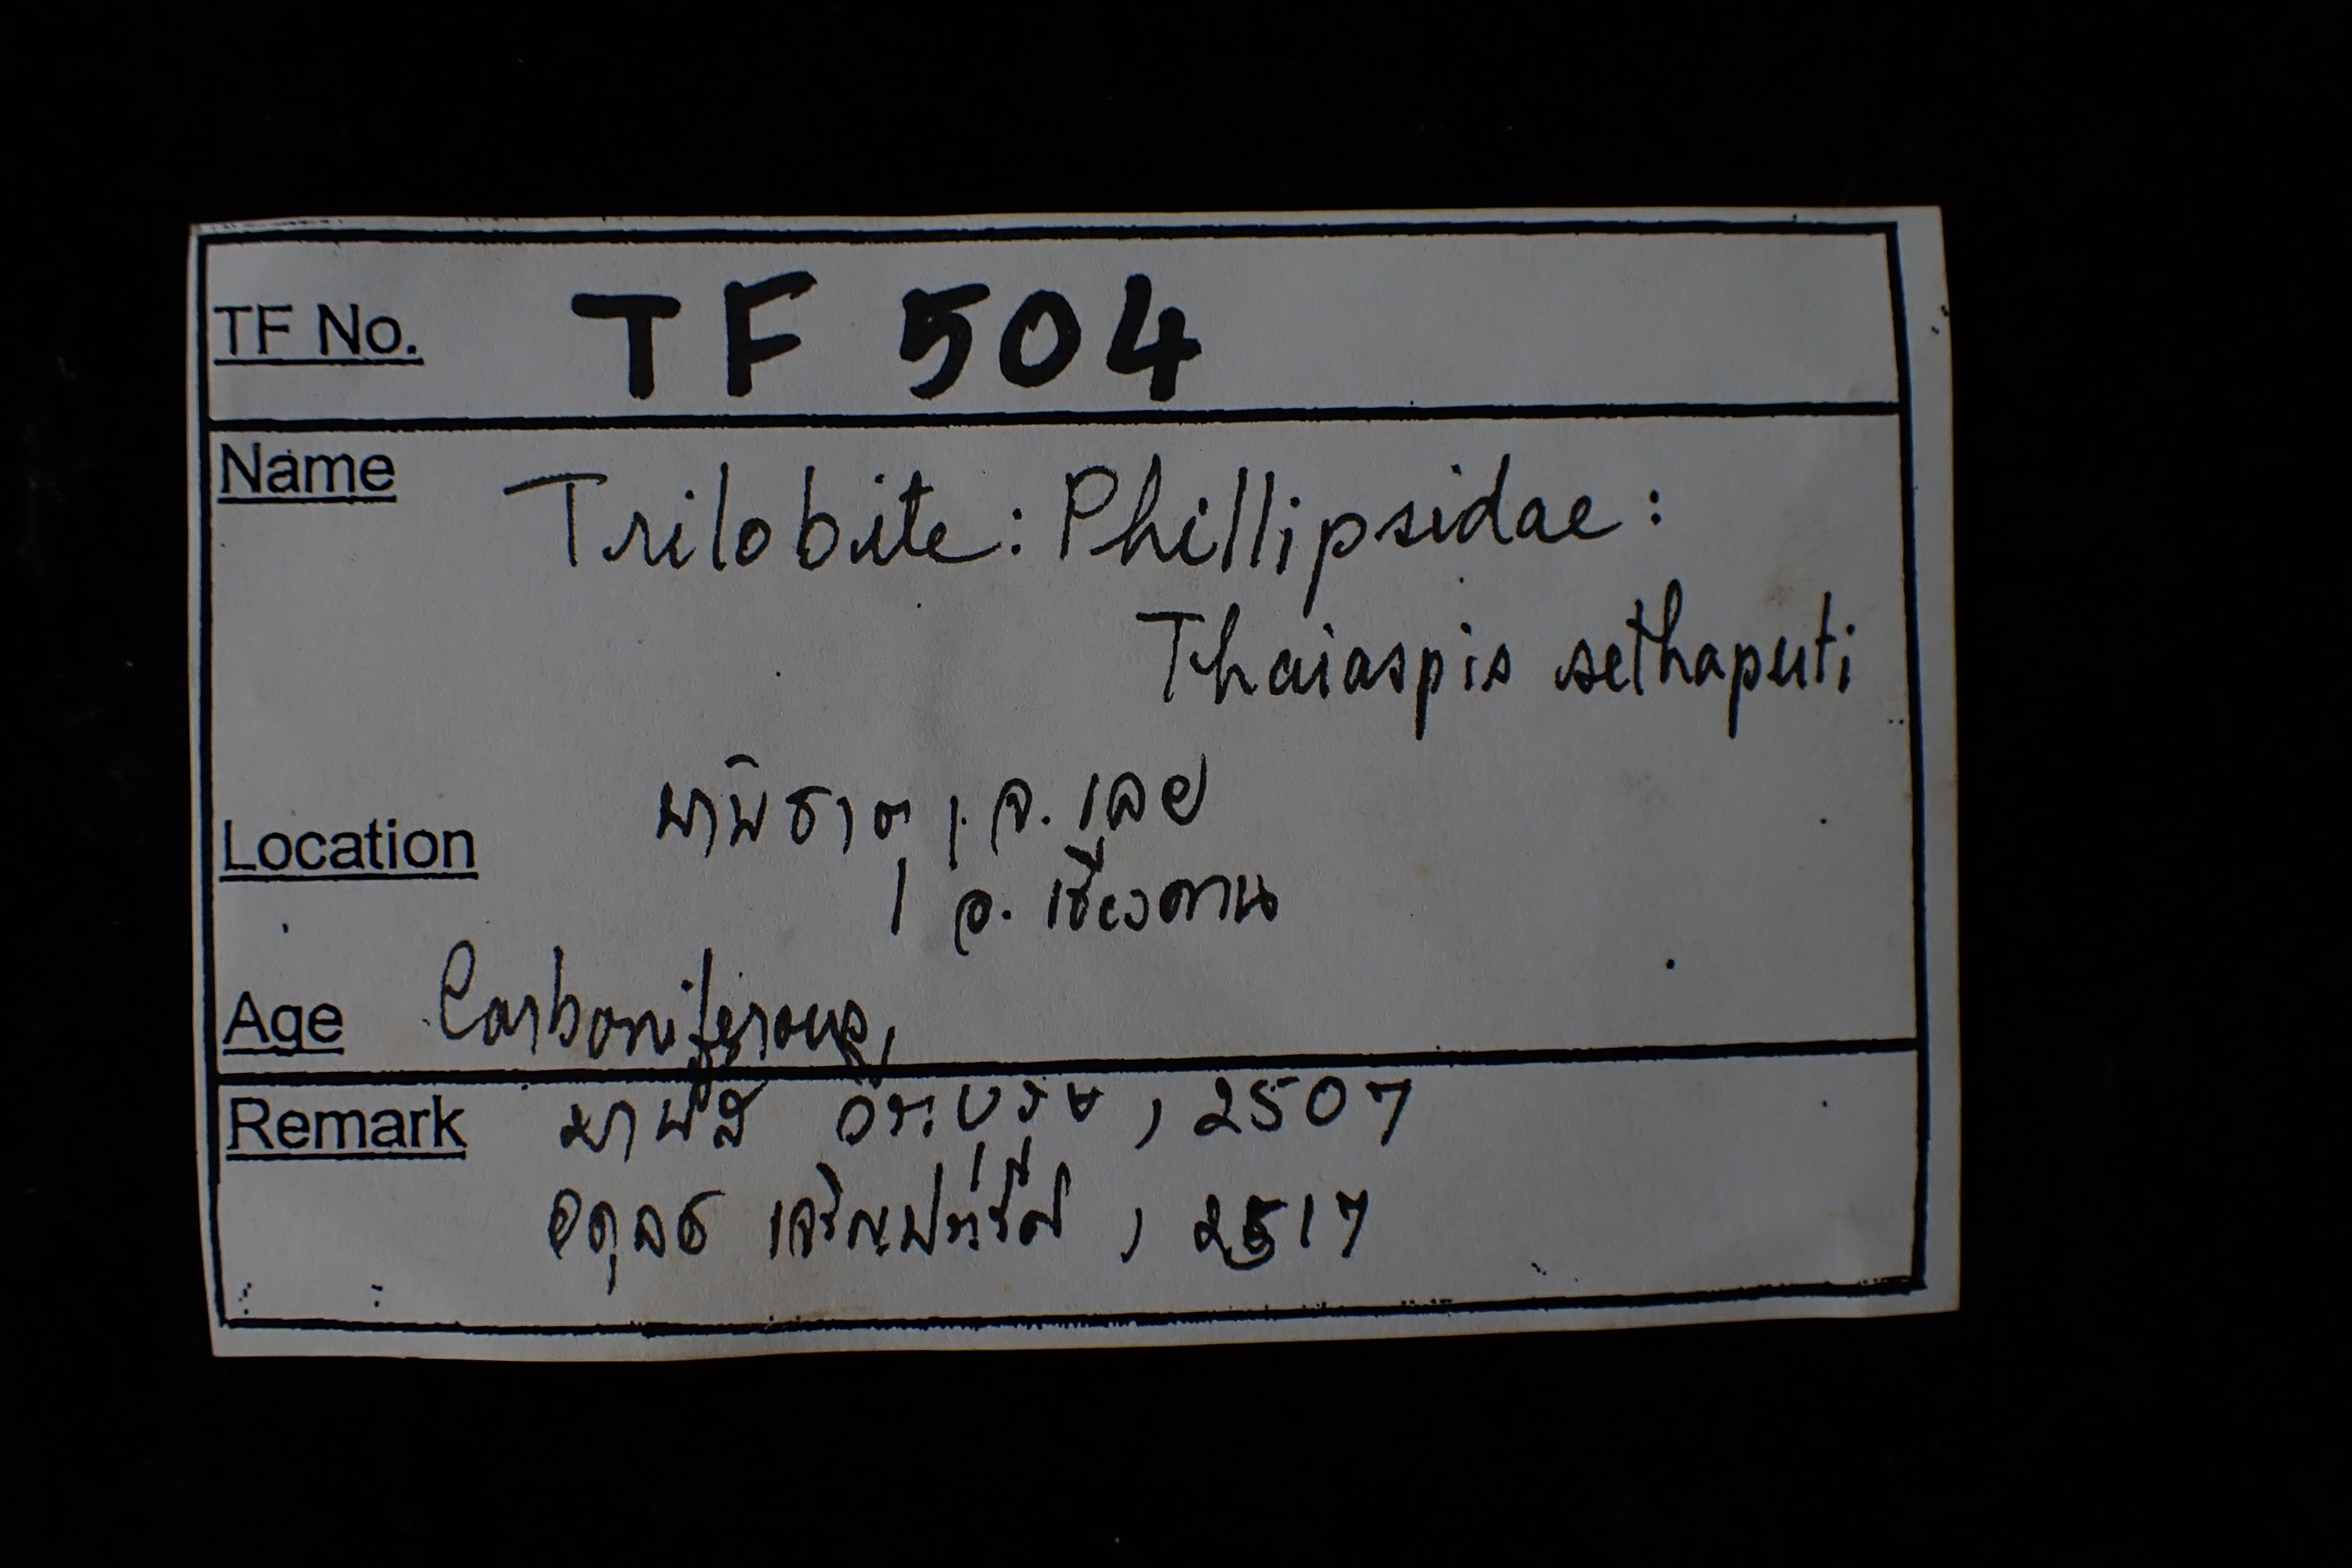 TF No. TF 504
Name Trilobite: Phillipsidae:
Thaiaspis sethaputi
Location จ. เลย
อ. เชียงคาน
Age Carboniferous,
Remark มานัส วีระบุรุษ, 2507
อดุลย์ เจริญปวัรัตน์, 2517